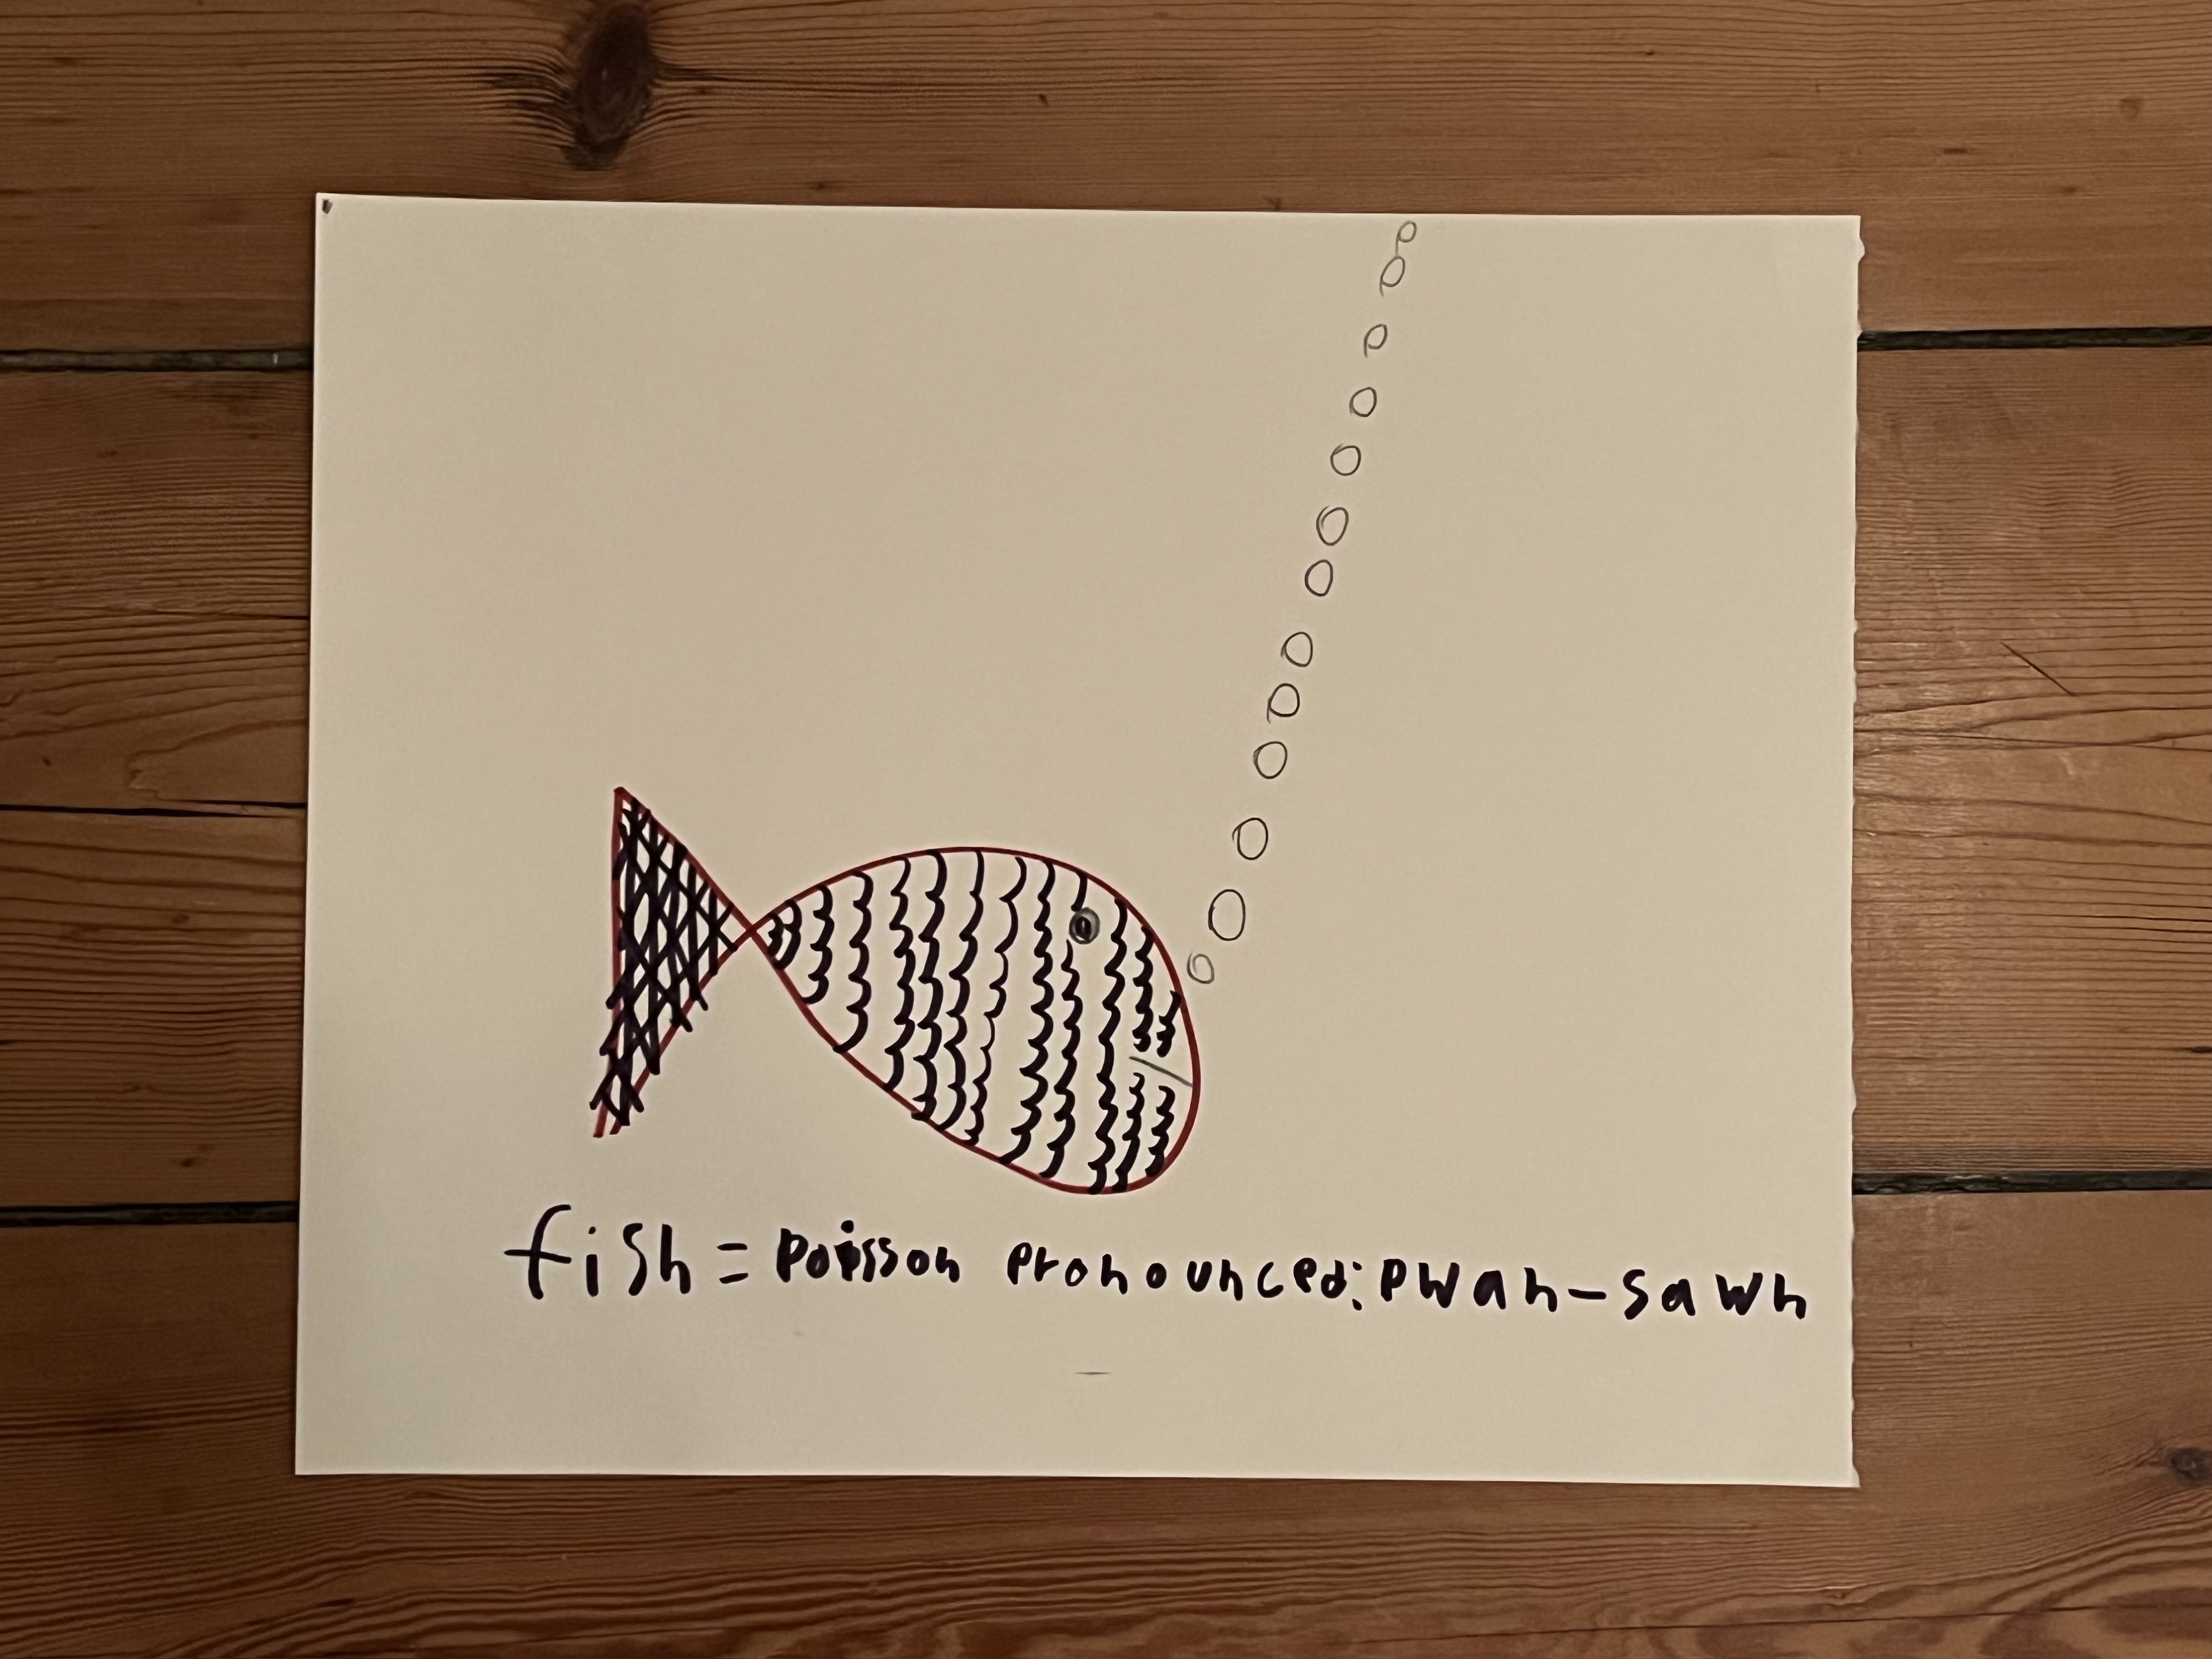 fish = poisson pronounced: pwah-sawn